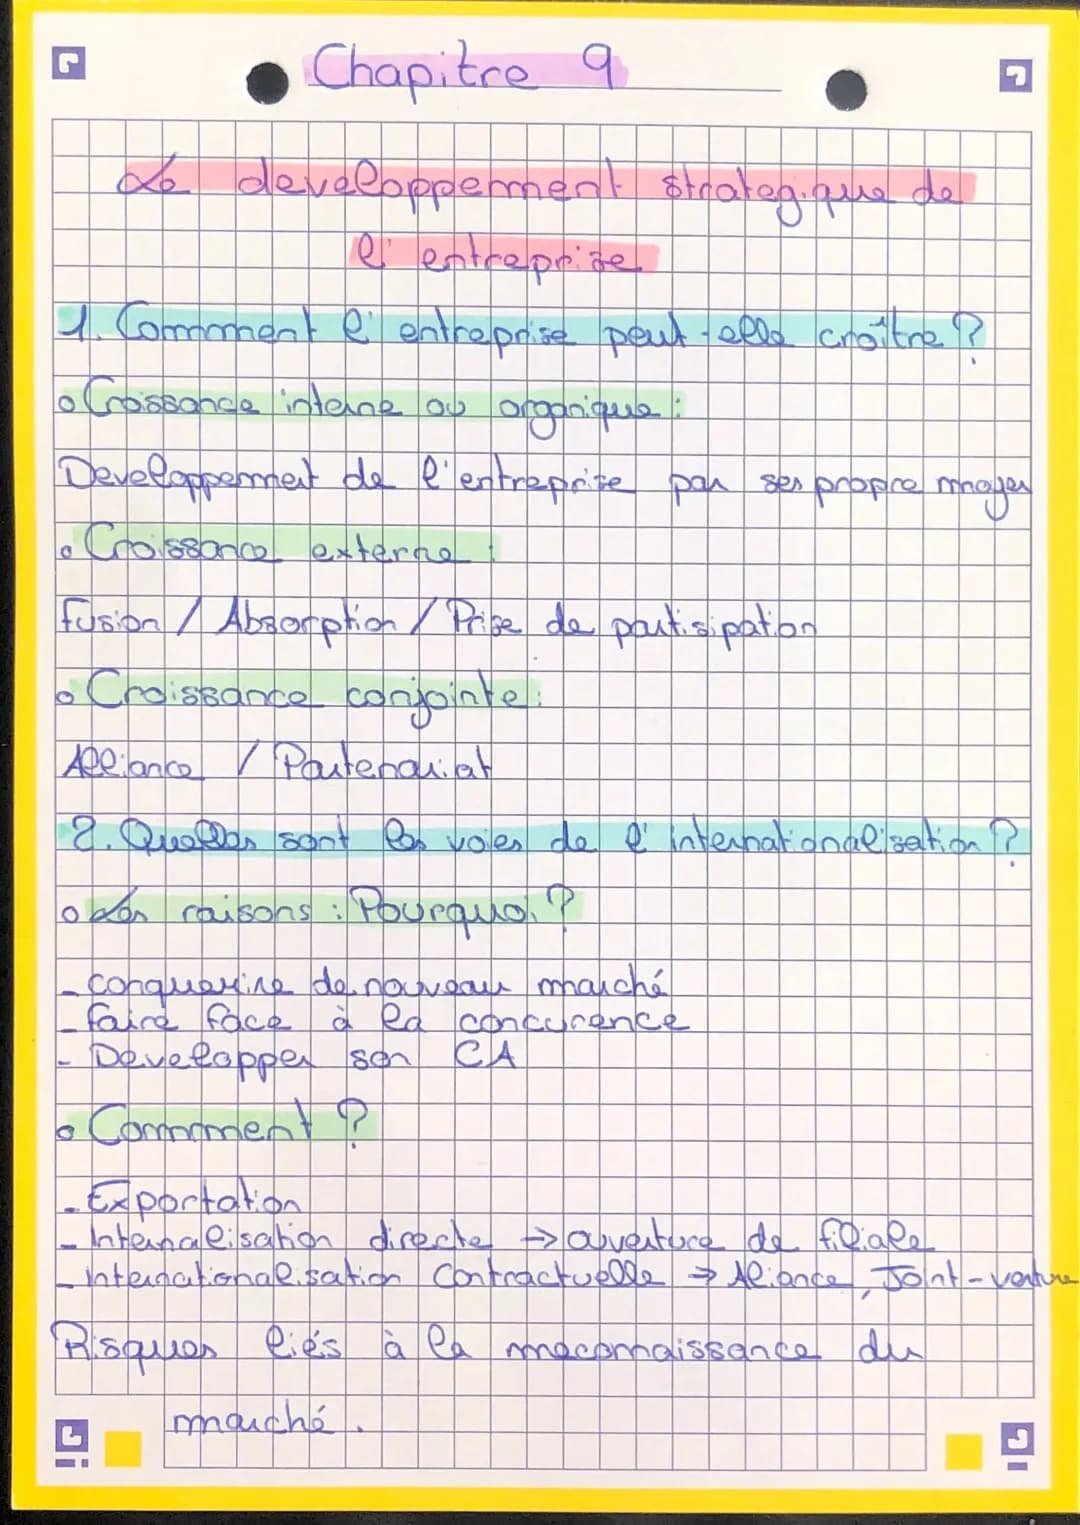 Chapitre 9
Le developpement strategique de
l'entreprise
1. Comment l'entreprise peut-elle croître ?
Croissance interne ou organique :
Developpement de l'entreprise par ses propre moyen
Croissance externe :
Fusion / Absorption / Prise de partisipation
Croissance conjointe :
Alliance / Partenariat
2. Quelles sont les voies de l'internationalisation ?
Les raisons : Pourquoi ?
- conquerire de nouveau marché
- faire face à la concurence
- Developper son CA
Comment ?
- Exportation
- Internalisation directe → ouverture de filiale
- Internationalisation Contractuelle → Aliance, Joint-venture
Risques liés à la meconnaissance du
marché.